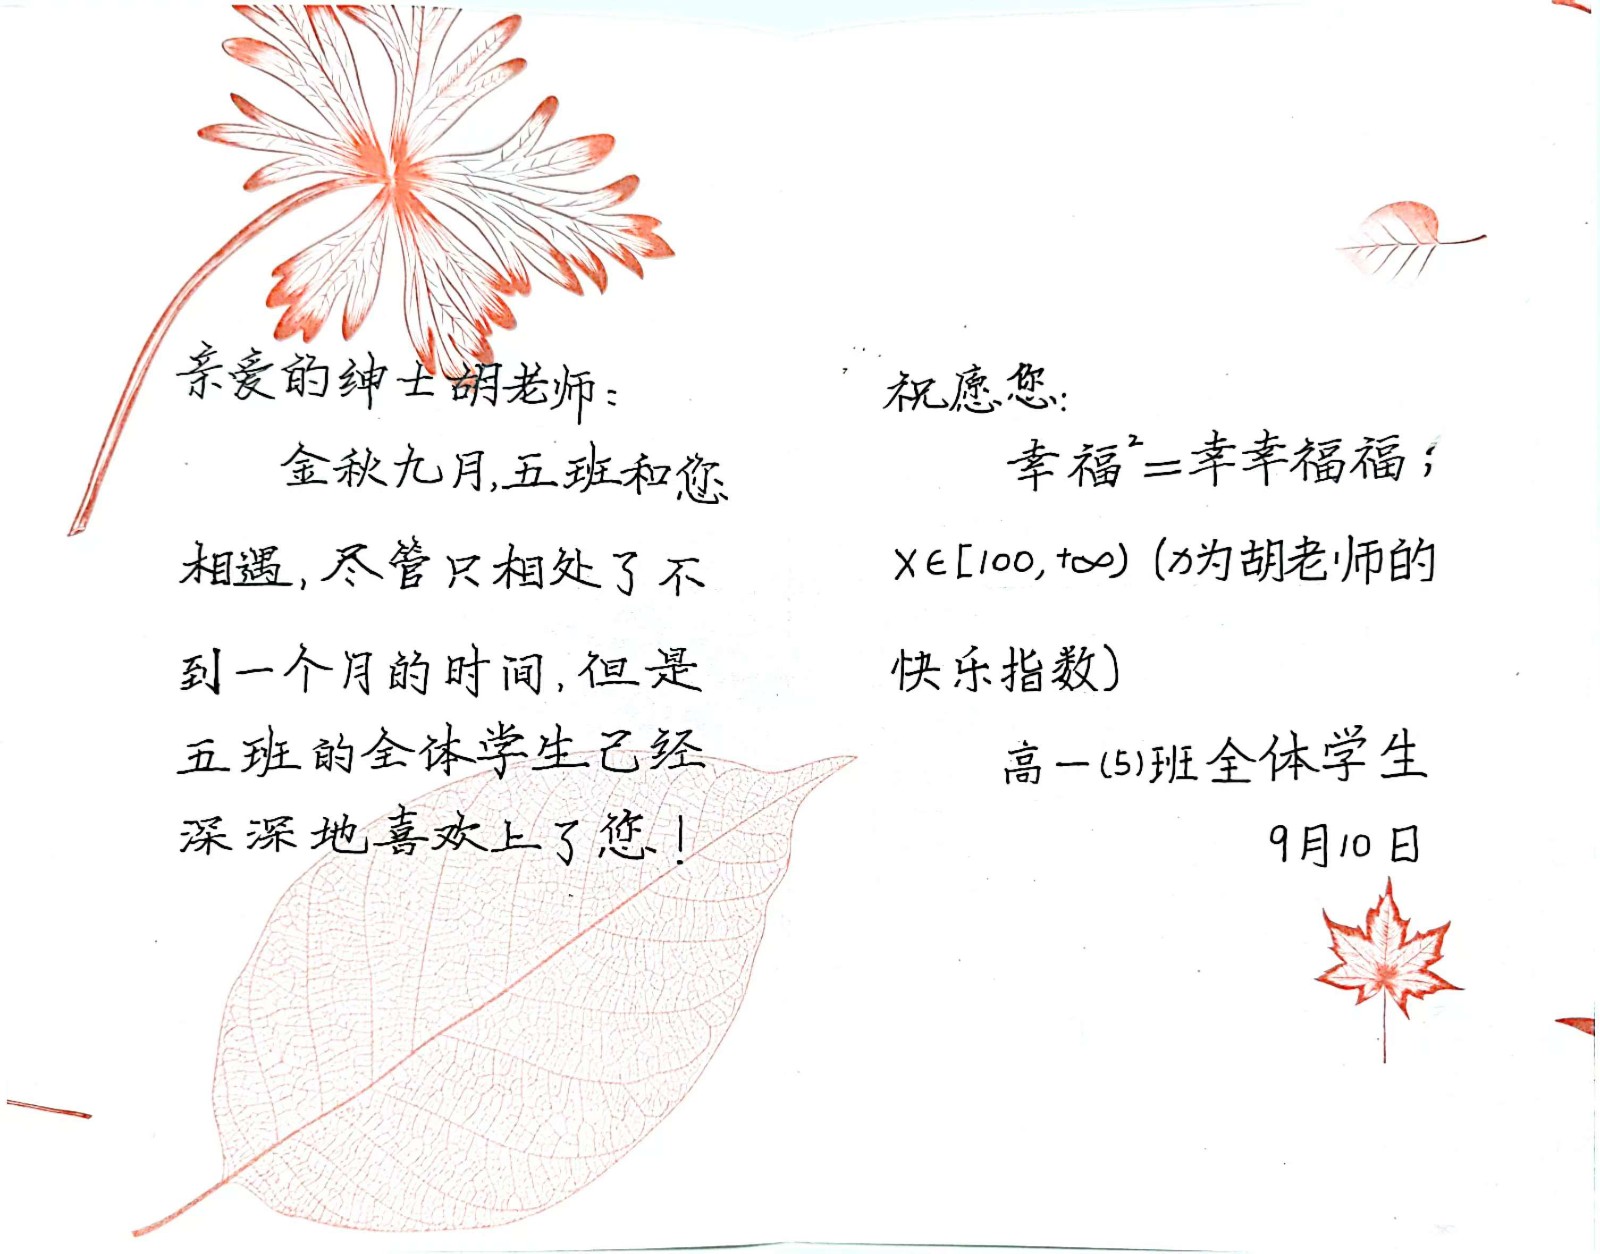 亲爱的绅士胡老师：
金秋九月,五班和您
相遇,尽管只相处了不
到一个月的时间,但是
五班的全体学生已经
深深地喜欢上了您！
祝愿您：
幸福²=幸幸福福；
X∈[100,+∞) (x为胡老师的
快乐指数)
高一(5)班全体学生
9月10日